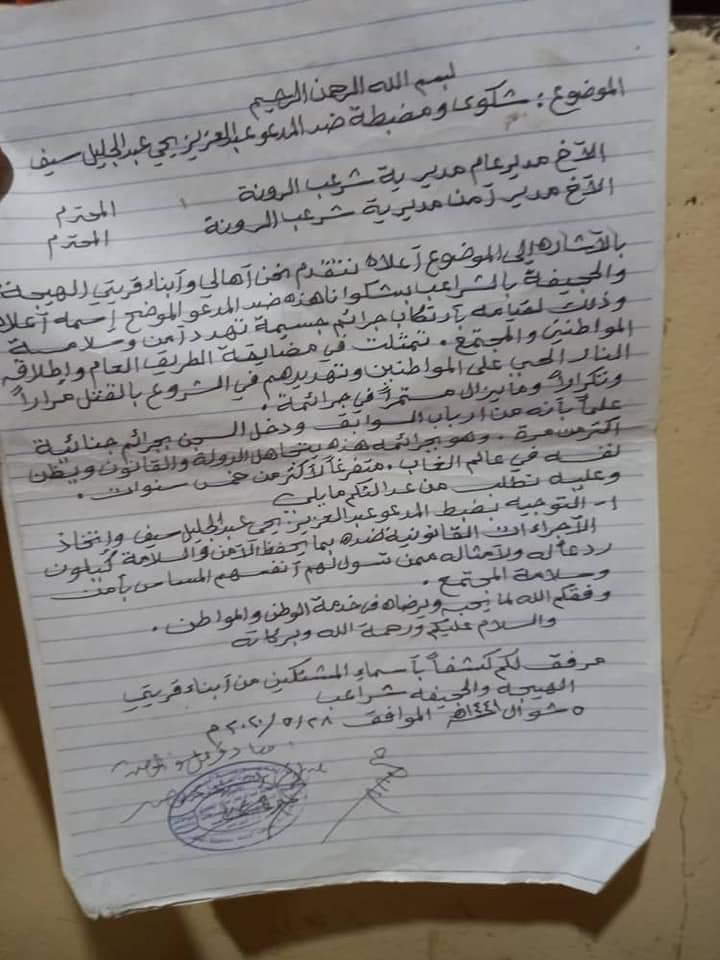 بسم الله الرحمن الرحيم
الموضوع: شكوى ومضبطة ضد المدعو عبدالعزيز يحي عبدالجليل سيف
الآخ مدير عام مديرية شرعب الرونة المحترم
الآخ مدير آمن مديرية شرعب الرونة المحترم
بالآشاره إلى الموضوع آعلاه نتقدم نحن آهالي وآبناء قريتي الهيجة
والجيفة بالشراعب بشكوانا هذه ضد المدعو الموضح إسمه آعلاه
وذلك لقيامه بآرتكاب جرائم جسيمة تهدد آمن وسلامة
المواطنين والمجتمع. تمثلت في مضايقة الطريق العام وإطلاقه
النار الحي على المواطنين وتهديدهم في الشروع بالقتل مراراً
وتكراراً وما يزال مستمراً في جرائمة.
علماً بآنه من آرباب السوابق ودخل السجن بجرائم جنائية
آكثر من مرة. وهو بجرائمه هذه يتجاهل الدولة والقانون ويظن
نفسه في عالم الغاب. متفرغاً لآكثر من خمس سنوات.
وعليه نطلب من عدالتكم مايلي
١- التوجيه بضبط المدعو عبدالعزيز يحي عبدالجليل سيف وإتخاذ
الآجراءات القانونية ضده بما يحفظ الآمن والسلامة كيلون
ردعاً له ولآمثاله ممن تسول لهم آنفسهم المساس بآمن
وسلامة المجتمع.
وفقكم الله لما يحب ويرضاه في خدمة الوطن والمواطن.
والسلام عليكم ورحمة الله وبركاتة
مرفق لكم كشفاً بآسماء المشتكين من آبناء قريتي
الهيجة والجيفه شراعب
٥ شوال ١٤٤١هـ الموافق ٢٠٢٠/٥/٢٨م